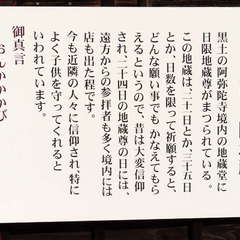 黒土の阿弥陀寺境内の地蔵堂に
日限地蔵尊がまつられている。
この地蔵は、二十一日とか、三十五日
とか、日数を限って祈願すると、
どんな願い事でも かなえてもら
えるというので、昔は大変信仰
され、二十四日の地蔵尊の日には、
遠方からの参拝者も多く境内には
店も出た程です。
今も近隣の人々に信仰され、特に
よく子供を守ってくれると
いわれています。
御真言
おんかかかび